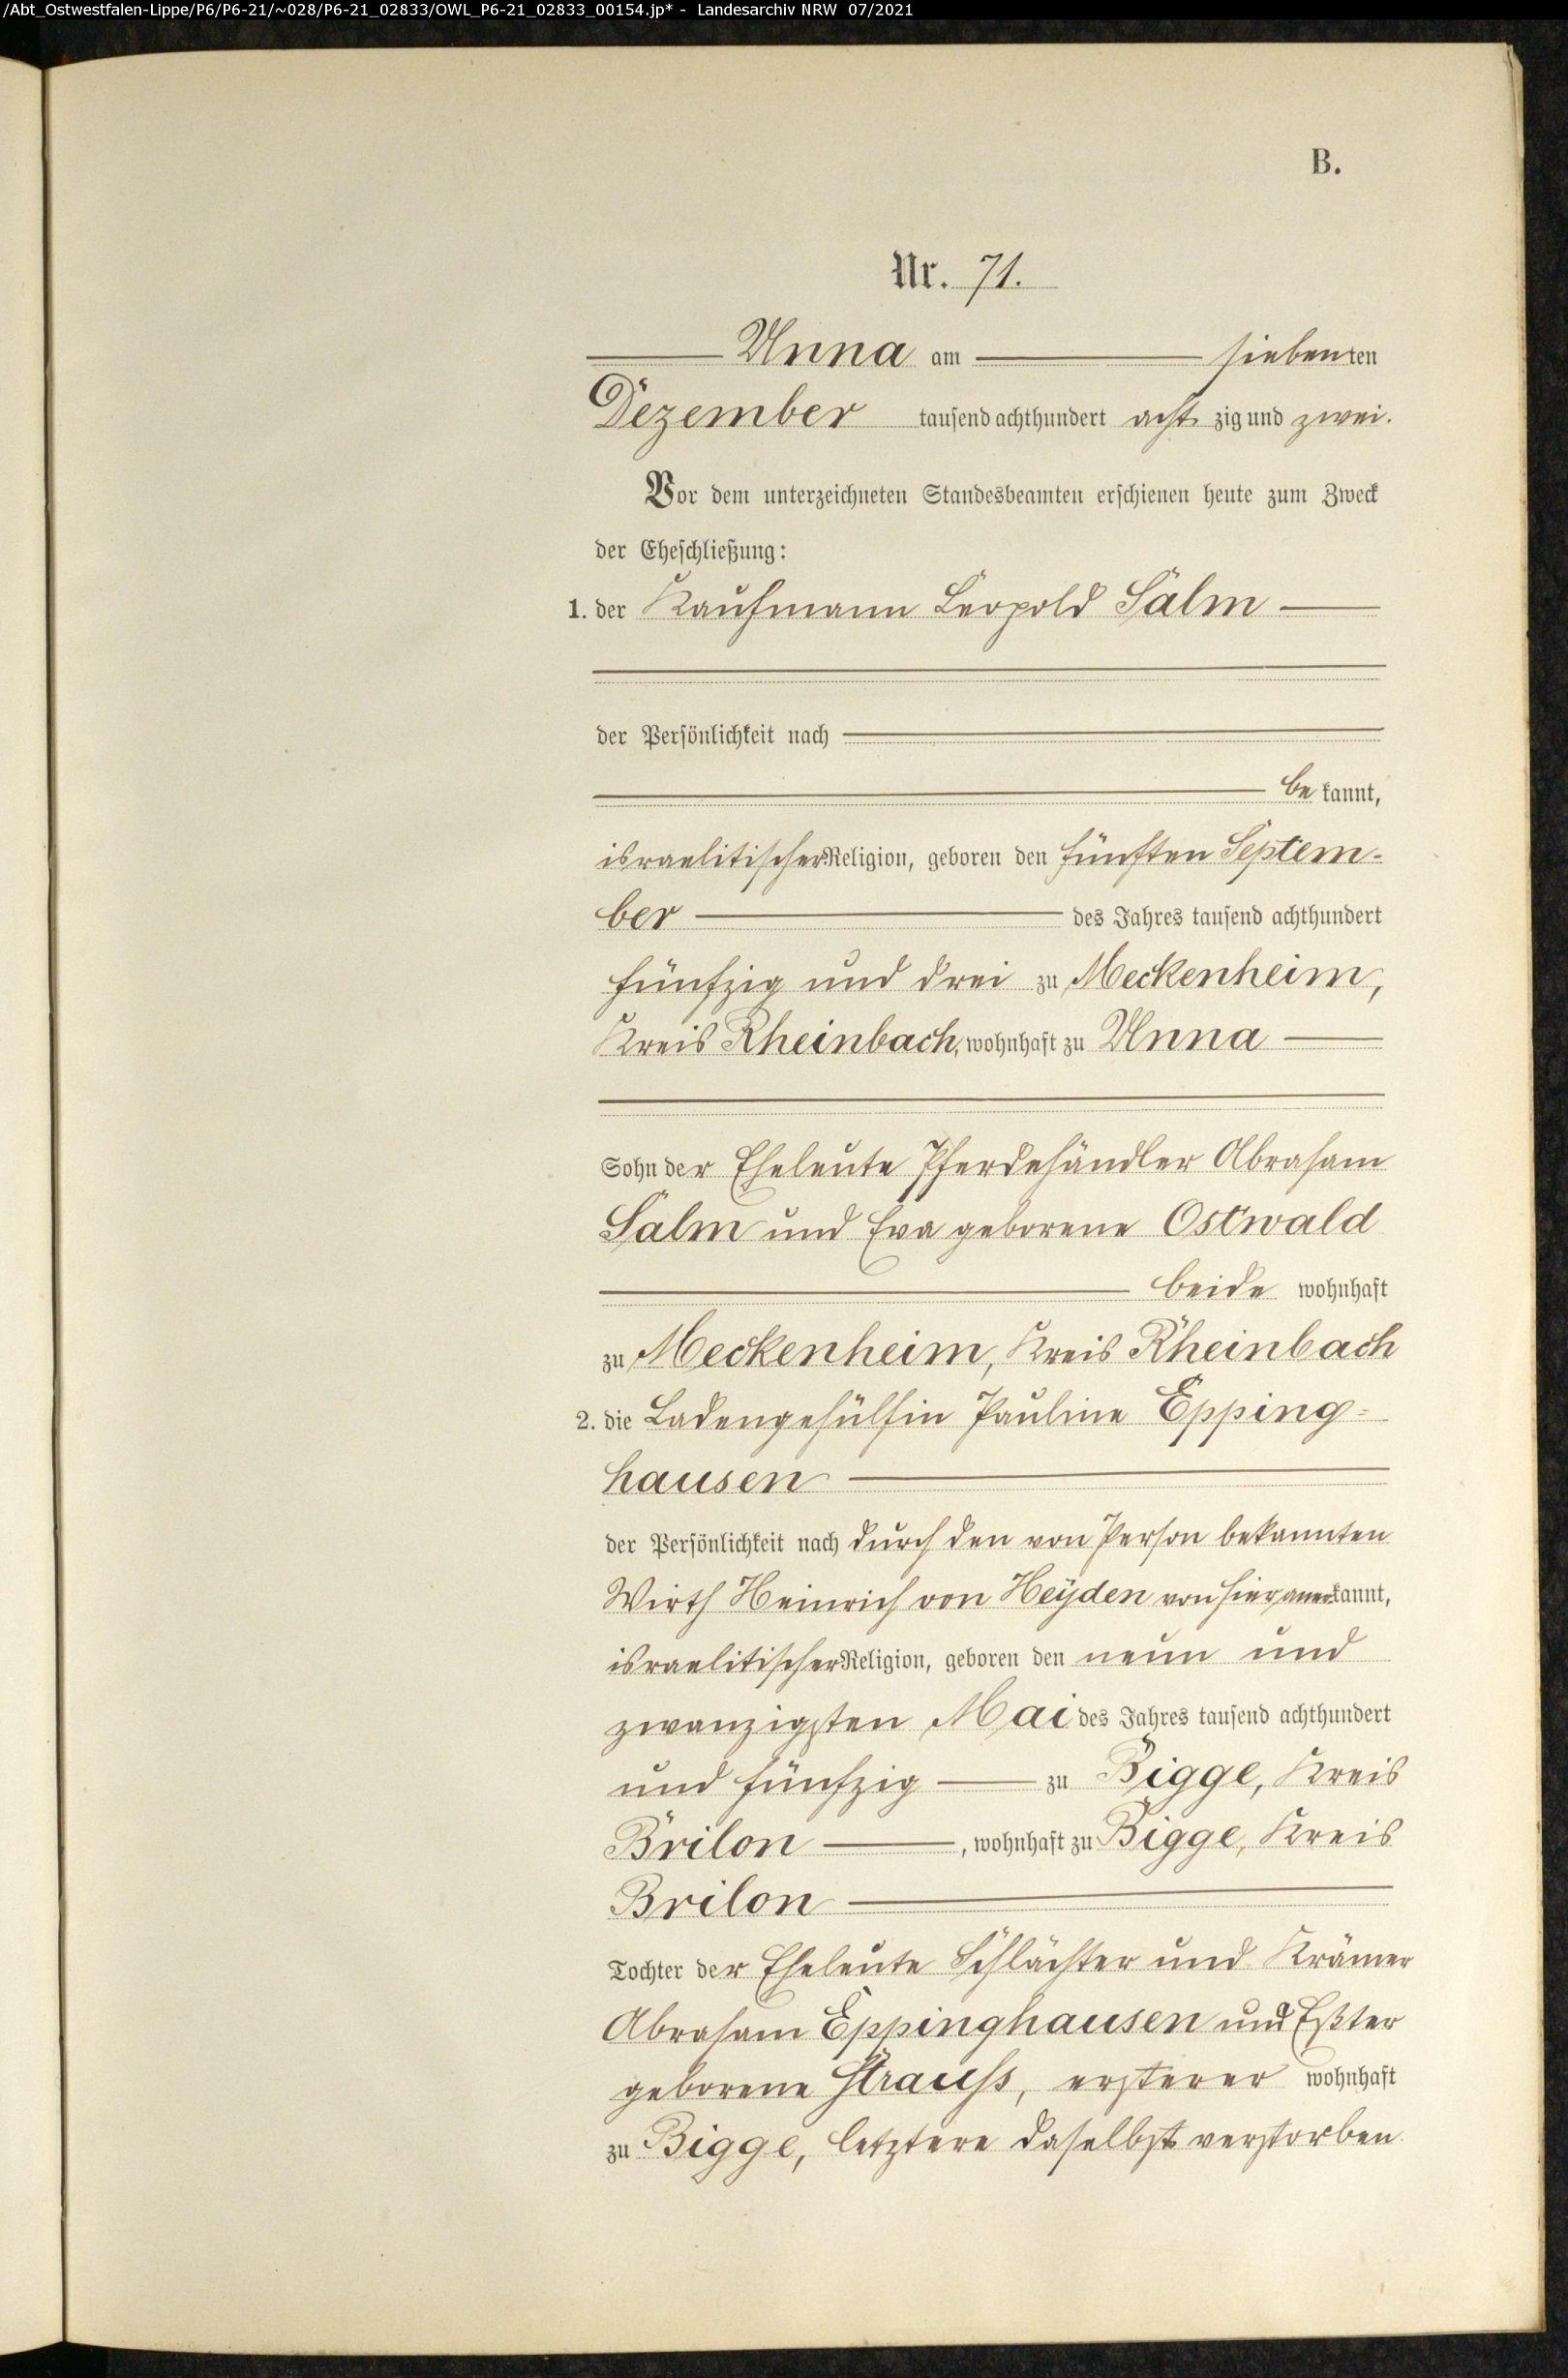 /Abt_Ostwestfalen-Lippe/P6/P6-21/~028/P6-21_02833/OWL_P6-21_02833_00154.jp* - Landesarchiv NRW 07/2021
B.
Nr. 71.
Unna am siebenten
Dezember tausend achthundert acht zig und zwei.
Vor dem unterzeichneten Standesbeamten erschienen heute zum Zweck
der Eheschließung:
1. der Kaufmann Leopold Salm
der Persönlichkeit nach
be kannt,
israelitischer Religion, geboren den fünften Septem-
ber des Jahres tausend achthundert
fünfzig und drei zu Meckenheim,
Kreis Rheinbach, wohnhaft zu Unna
Sohn der Eheleute Pferdehändler Abraham
Salm und Eva geborene Ostwald
beide wohnhaft
zu Meckenheim, Kreis Rheinbach
2. die Ladengehülfin Pauline Epping-
hausen
der Persönlichkeit nach durch den von Person bekannten
Wirth Heinrich von Heyden von hier anerkannt,
israelitischer Religion, geboren den neun und
zwanzigsten Mai des Jahres tausend achthundert
und fünfzig zu Bigge, Kreis
Brilon, wohnhaft zu Bigge, Kreis
Brilon
Tochter der Eheleute Schlächter und Krämer
Abraham Eppinghausen und Eßter
geborene Strauss, ersterer wohnhaft
zu Bigge, letztere daselbst verstorben